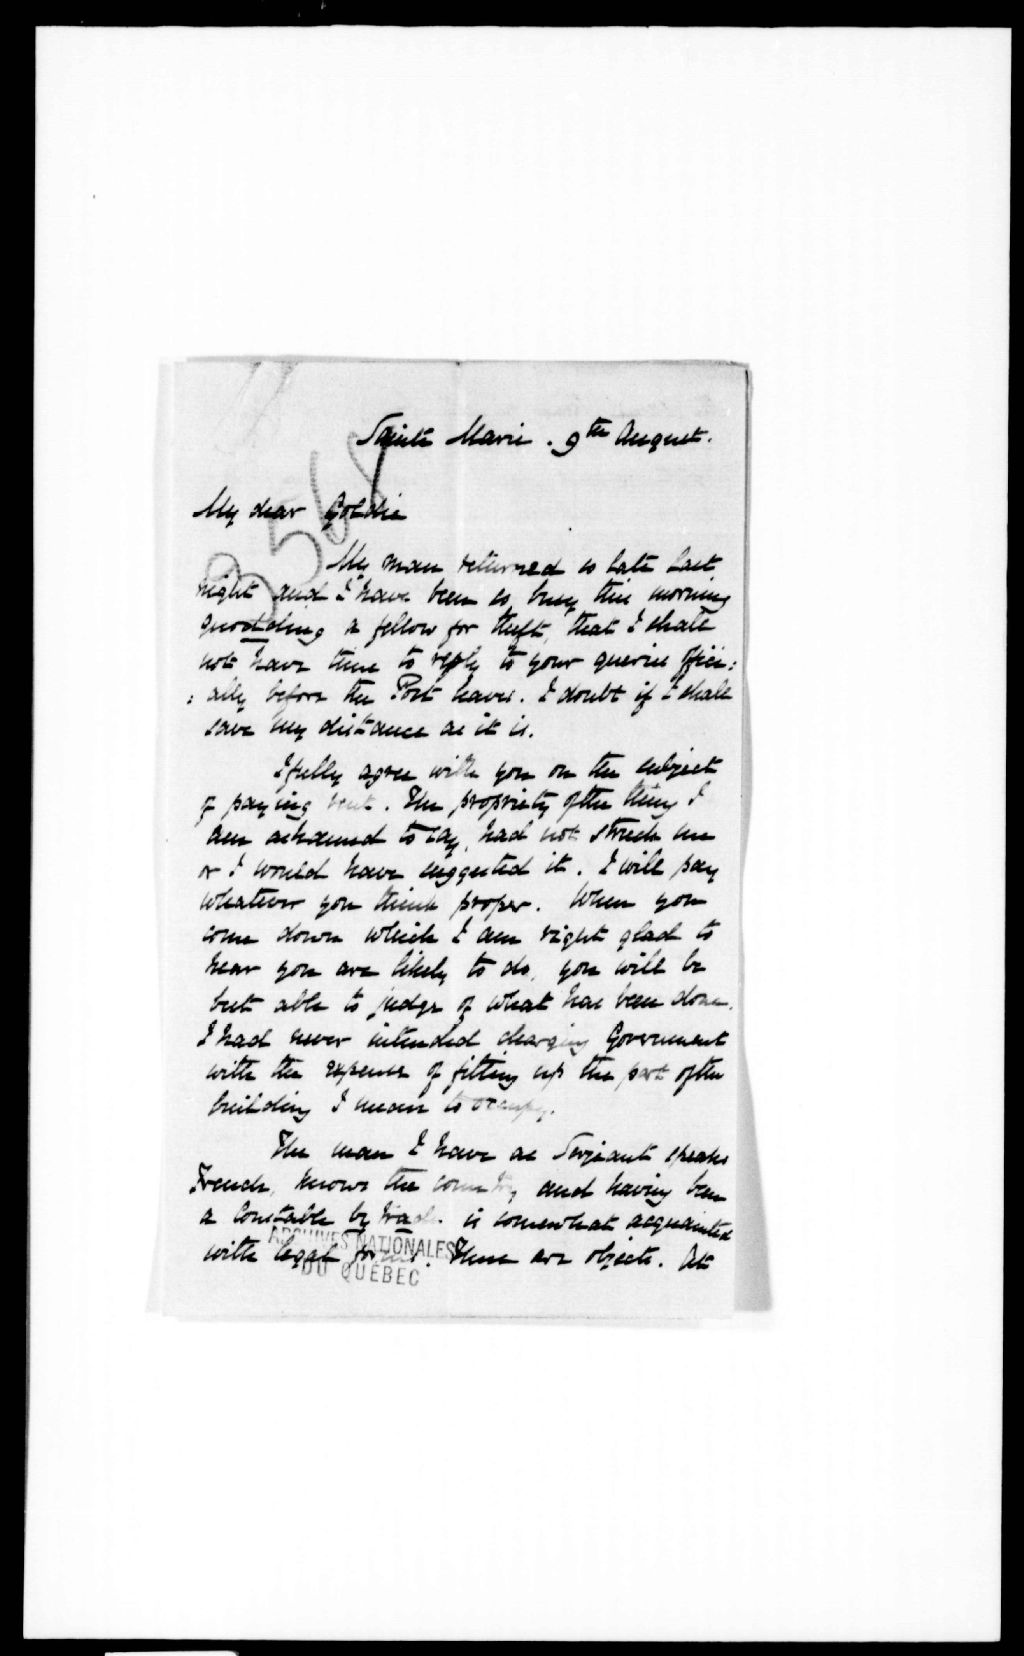 Sainte Marie. 9th August.
3568
My dear Goldie
My man returned so late last
night and I have been so busy this morning
a fellow for theft, that I shall
not have time to reply to your queries offici:
: ally before the Post leaves. I doubt if I shall
save my distance as it is.
I fully agree with you on the subject
of paying rent. The propriety of the thing I
am ashamed to say, had not struck me
or I would have suggested it. I will pay
whatever you think proper. When you
come down which I am right glad to
hear you are likely to do, you will be
best able to judge of what has been done.
I had never intended charging Government
with the expense of fitting up the part of the
building I mean to occupy.
The man I have as Serjeant speaks
French, knows the country and having been
a Constable by trade is somewhat acquainted
with legal forms. These are objects. At
ARCHIVES NATIONALES
DU QUÉBEC